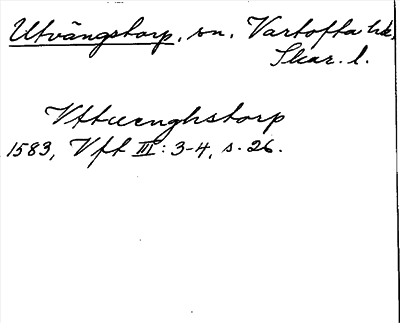 Utvängstorp, sn. Vartofta hd,
Skar. l.
Vttuenghstorp
1583, Vft III: 3-4, s. 26.